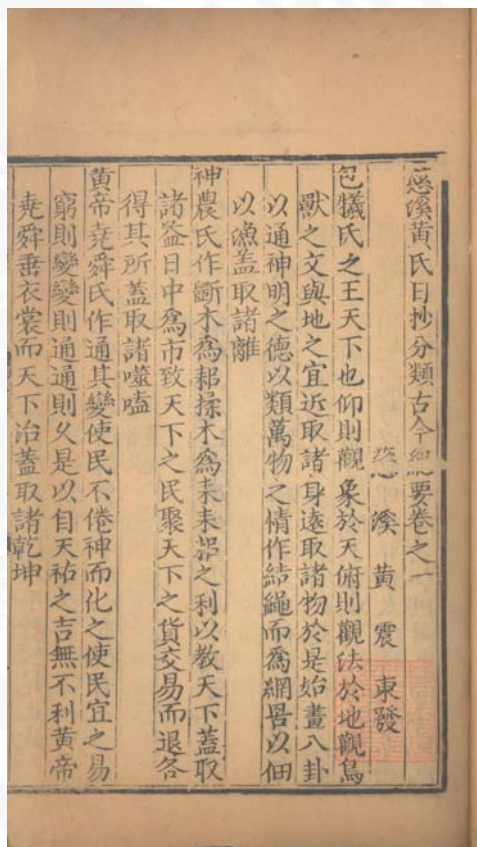 慈溪黃氏日抄分類古今紀要卷之一
慈溪黃震東發
包犧氏之王天下也仰則觀象於天俯則觀法於地觀鳥
獸之文與地之宜近取諸身遠取諸物於是始畫八卦
以通神明之德以類萬物之情作結繩而為網罟以佃
以漁蓋取諸離
神農氏作斷木為耜揉木為耒耒耨之利以教天下蓋取
諸益日中爲市致天下之民聚天下之貨交易而退各
得其所蓋取諸噬嗑
黃帝堯舜氏作通其變使民不倦神而化之使民宜之易
窮則變變則通通則久是以自天祐之吉無不利黃帝
堯舜垂衣裳而天下治蓋取諸乾坤